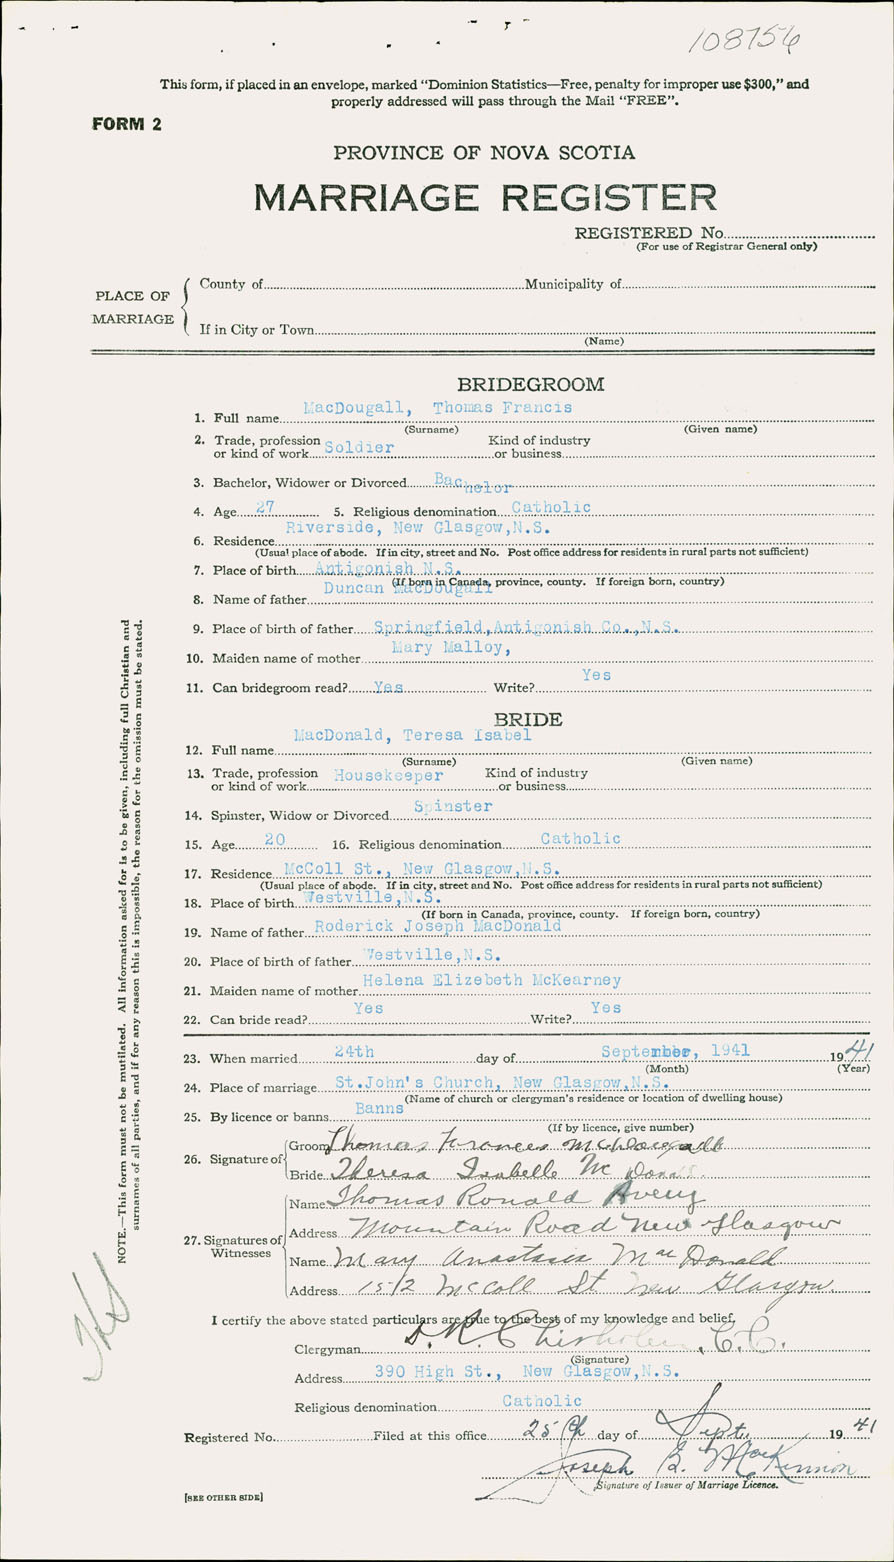 108756
This form, if placed in an envelope, marked “Dominion Statistics—Free, penalty for improper use $300,” and
properly addressed will pass through the Mail “FREE”.
FORM 2
PROVINCE OF NOVA SCOTIA
MARRIAGE REGISTER
REGISTERED No.
(For use of Registrar General only)
PLACE OF MARRIAGE
County of Municipality of
If in City or Town
(Name)
BRIDEGROOM
1. Full name MacDougall, Thomas Francis
(Surname) (Given name)
2. Trade, profession or kind of work Soldier Kind of industry or business
3. Bachelor, Widower or Divorced Bachelor
4. Age 27 5. Religious denomination Catholic
6. Residence Riverside, New Glasgow,N.S.
(Usual place of abode. If in city, street and No. Post office address for residents in rural parts not sufficient)
7. Place of birth Antigonish N.S.
(If born in Canada, province, county. If foreign born, country)
8. Name of father Duncan MacDougall
9. Place of birth of father Springfield,Antigonish Co.,N.S.
10. Maiden name of mother Mary Malloy,
11. Can bridegroom read? Yes Write? Yes
BRIDE
12. Full name MacDonald, Teresa Isabel
(Surname) (Given name)
13. Trade, profession or kind of work Housekeeper Kind of industry or business
14. Spinster, Widow or Divorced Spinster
15. Age 20 16. Religious denomination Catholic
17. Residence McColl St., New Glasgow,N.S.
(Usual place of abode. If in city, street and No. Post office address for residents in rural parts not sufficient)
18. Place of birth Westville,N.S.
(If born in Canada, province, county. If foreign born, country)
19. Name of father Roderick Joseph MacDonald
20. Place of birth of father Westville,N.S.
21. Maiden name of mother Helena Elizebeth McKearney
22. Can bride read? Yes Write? Yes
23. When married 24th day of September, 1941 1941
(Month) (Year)
24. Place of marriage St.John's Church, New Glasgow,N.S.
(Name of church or clergyman's residence or location of dwelling house)
25. By licence or banns Banns
(If by licence, give number)
26. Signature of Groom Thomas Frances McDougall
Bride Theresa Isabelle McDonald
27. Signatures of Witnesses
Name Thomas Ronald Avery
Address Mountain Road New Glasgow
Name Mary Anastasia MacDonald
Address 1512 McColl St New Glasgow.
I certify the above stated particulars are true to the best of my knowledge and belief.
Clergyman D. R. Chisholm, C.C.
(Signature)
Address 390 High St., New Glasgow,N.S.
Religious denomination Catholic
Registered No. Filed at this office 25th day of Sept. 1941
Joseph B. MacKinnon
Signature of Issuer of Marriage Licence.
[SEE OTHER SIDE]
NOTE.—This form must not be mutilated. All information asked for is to be given, including full Christian and
surnames of all parties, and if for any reason this is impossible, the reason for the omission must be stated.